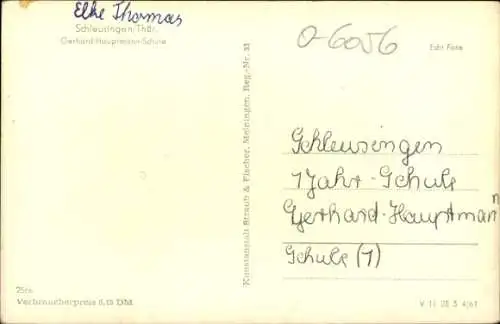 Elke Thomas
Schleusingen/Thür.
Gerhard-Hauptmann-Schule
0-6056
Echt Foto
Kunstanstalt Straub & Fischer, Meiningen, Reg.-Nr. 33
Schleusingen
1 Jahr-Schule
Gerhard-Hauptmann
Schule (1)
Verbraucherpreis 0,15 DM
V 11 28 5 4/61